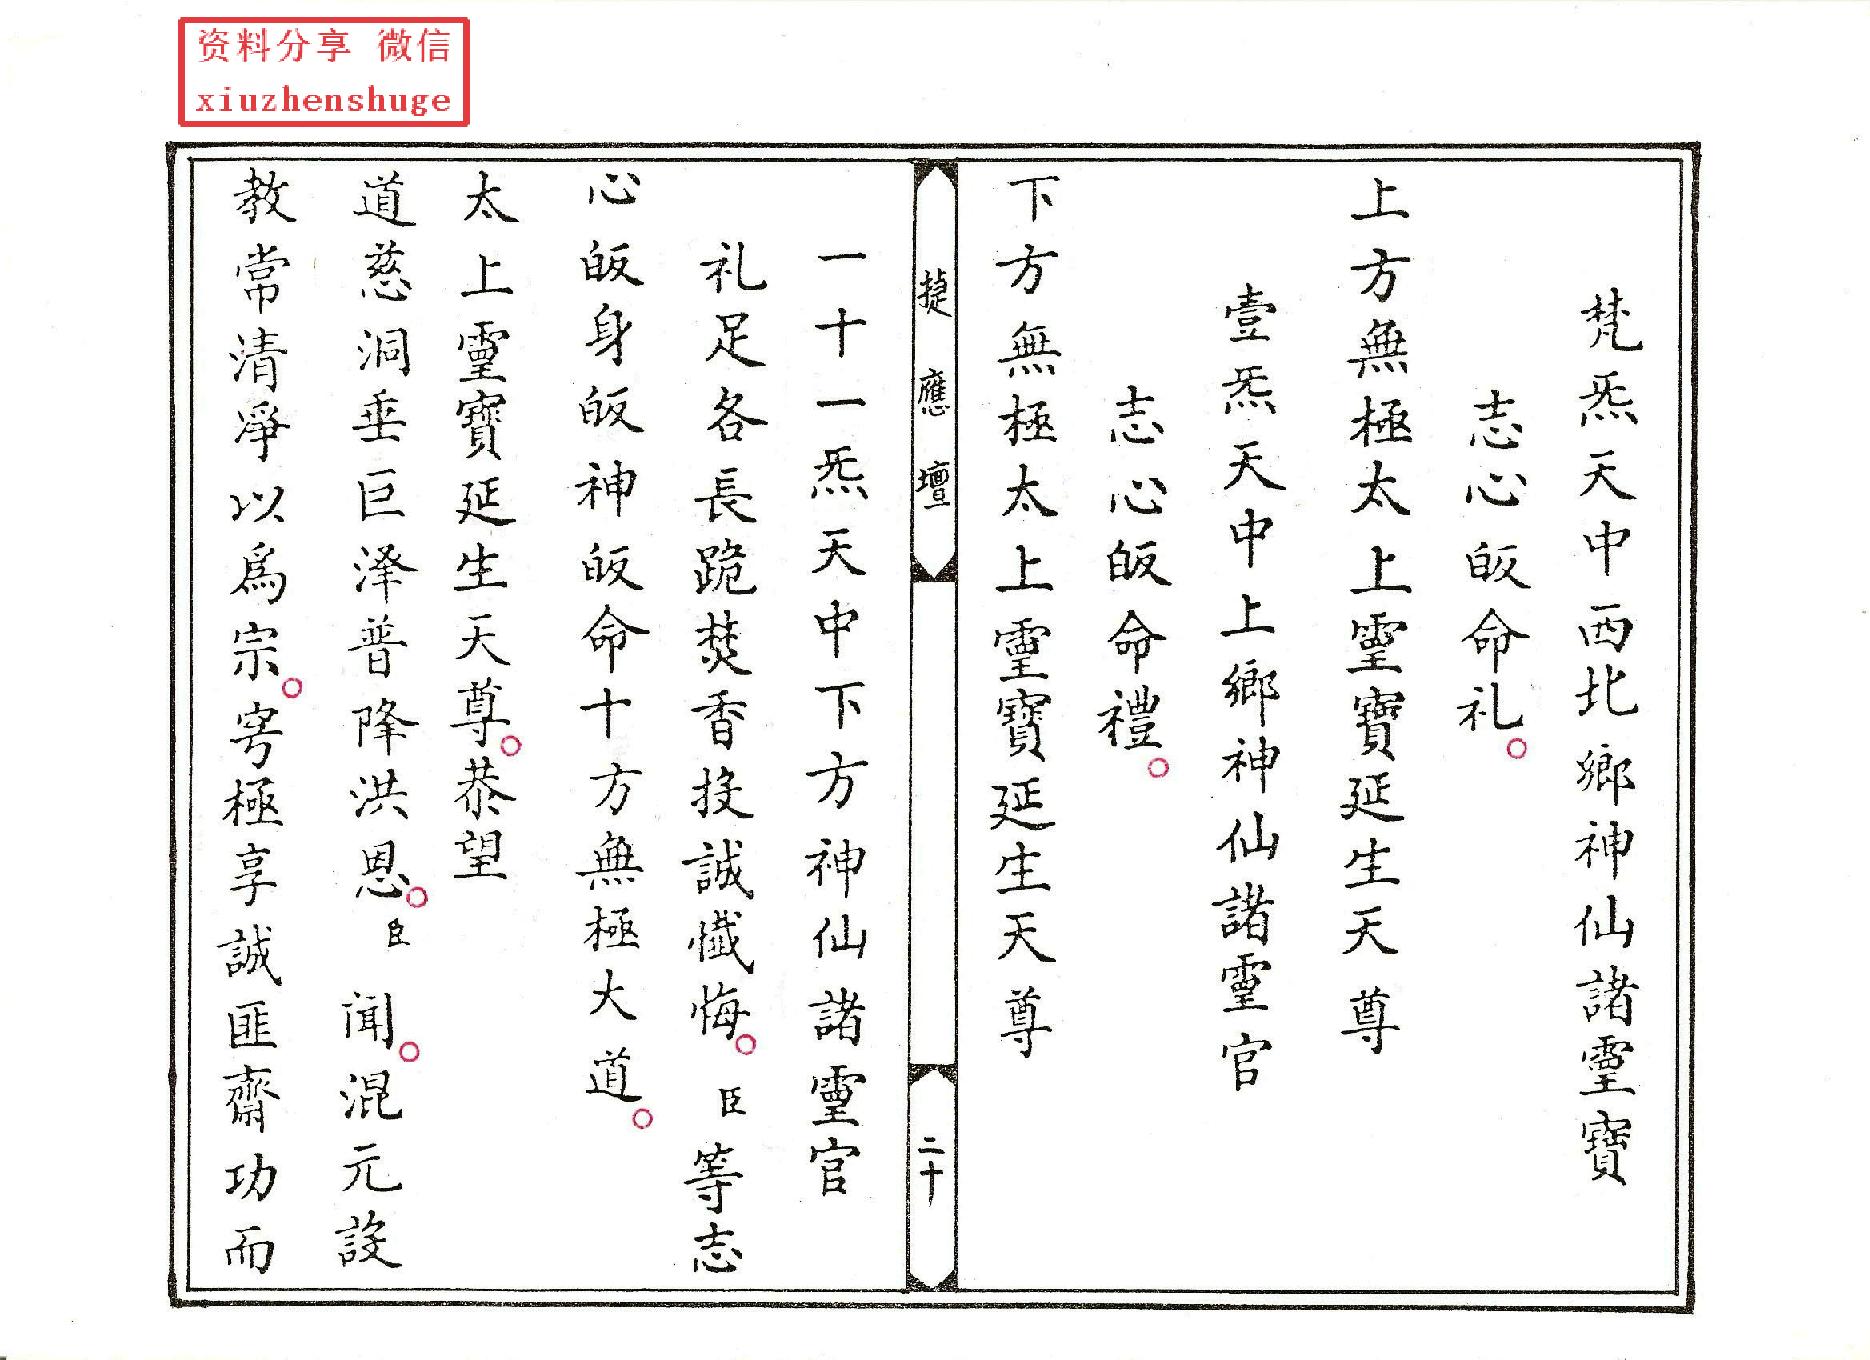 资料分享 微信
xiuzhenshuge
梵炁天中西北鄉神仙諸靈寶
志心皈命礼
上方無極太上靈寶延生天尊
壹炁天中上鄉神仙諸靈官
志心皈命禮
下方無極太上靈寶延生天尊
捷應壇
二十
一十一炁天中下方神仙諸靈官
礼足各長跪焚香投誠懺悔臣等志
心皈身皈神皈命十方無極大道
太上靈寶延生天尊恭望
道慈洞垂巨泽普降洪恩臣聞混元設
教常清凈以爲宗㝯極享誠匪齋功而